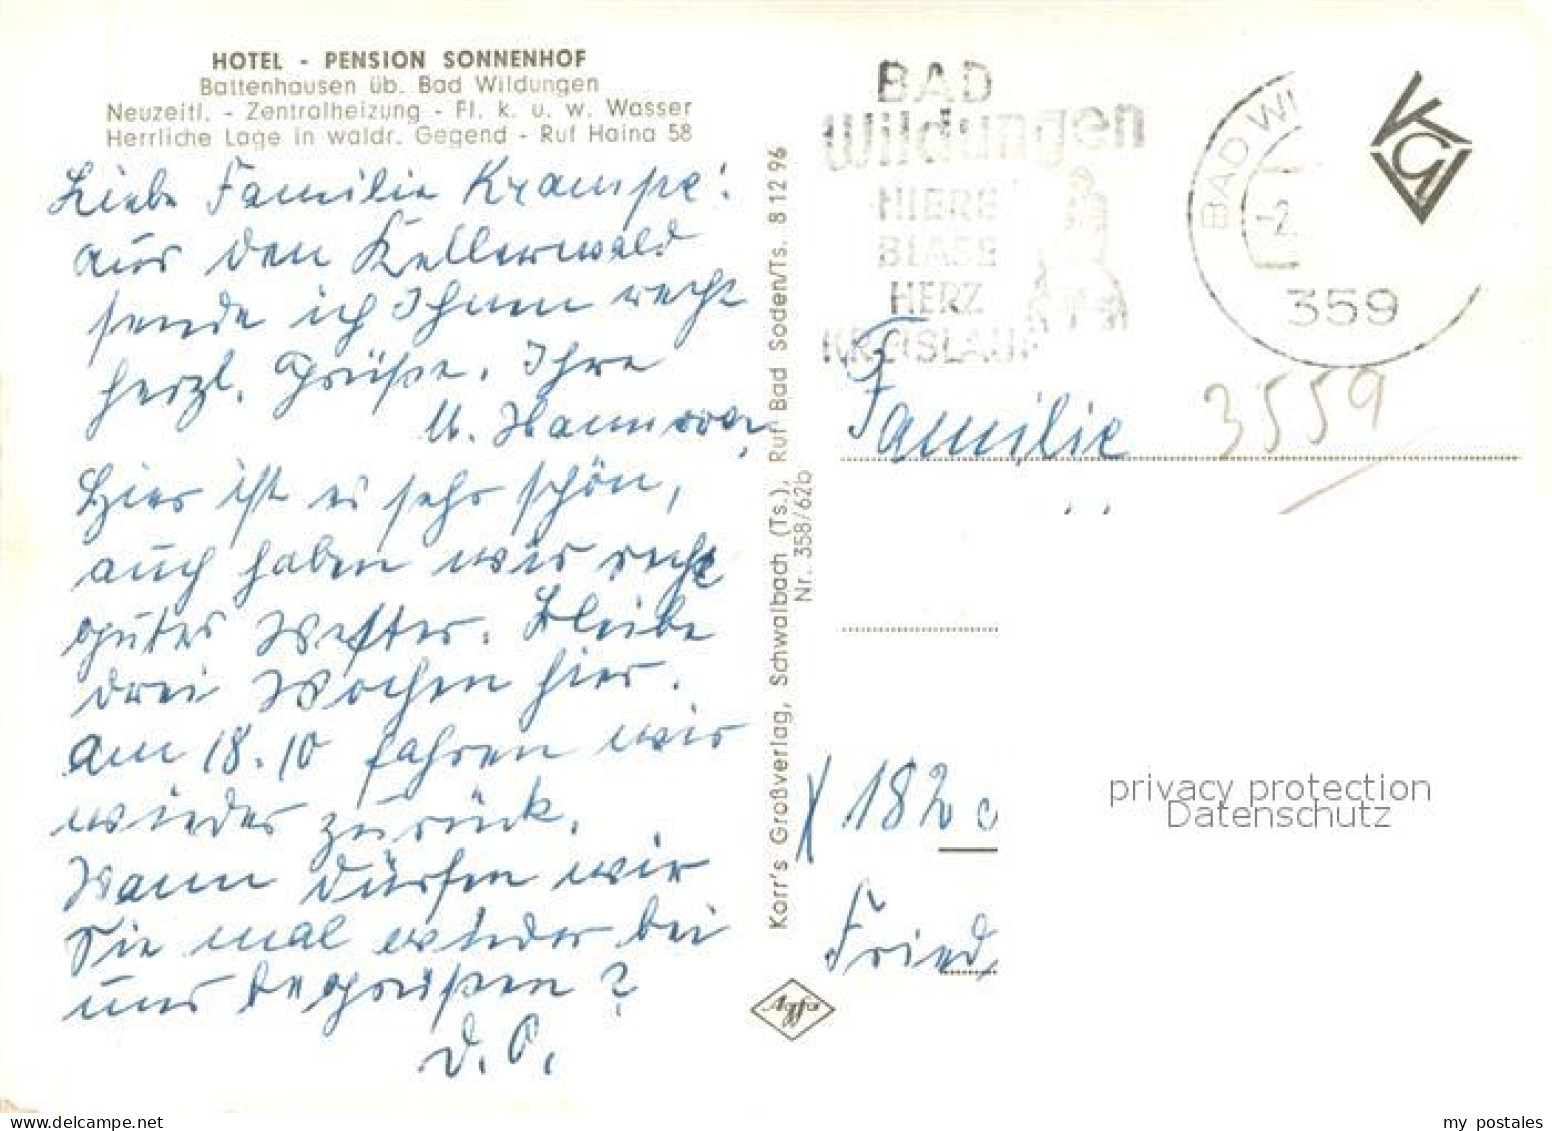 HOTEL - PENSION SONNENHOF
Battenhausen üb. Bad Wildungen
Neuzeitl. - Zentralheizung - Fl. k. u. w. Wasser
Herrliche Lage in waldr. Gegend - Ruf Haina 58
Liebe Familie Krampe!
Aus den Kellerwald
sende ich Ihnen recht
herzl. Grüße. Ihre
Hier ist es sehr schön,
auch haben wir recht
gutes Wetter. Bleibe
drei Wochen hier.
Am 18.10 fahren wir
wieder zurück.
Wann dürfen wir
Sie mal wieder bei
uns begrüßen?
d. O.
Korr's Großverlag, Schwalbach (Ts.), Ruf Bad Soden/Ts. 8 12 96
Nr. 358/62b
Agfa
BAD
Wildungen
NIERE
BLASE
HERZ
KREISLAUF
BAD WI
-2.
359
KGV
3559
Familie
182
Fried
privacy protection
Datenschutz
my postales